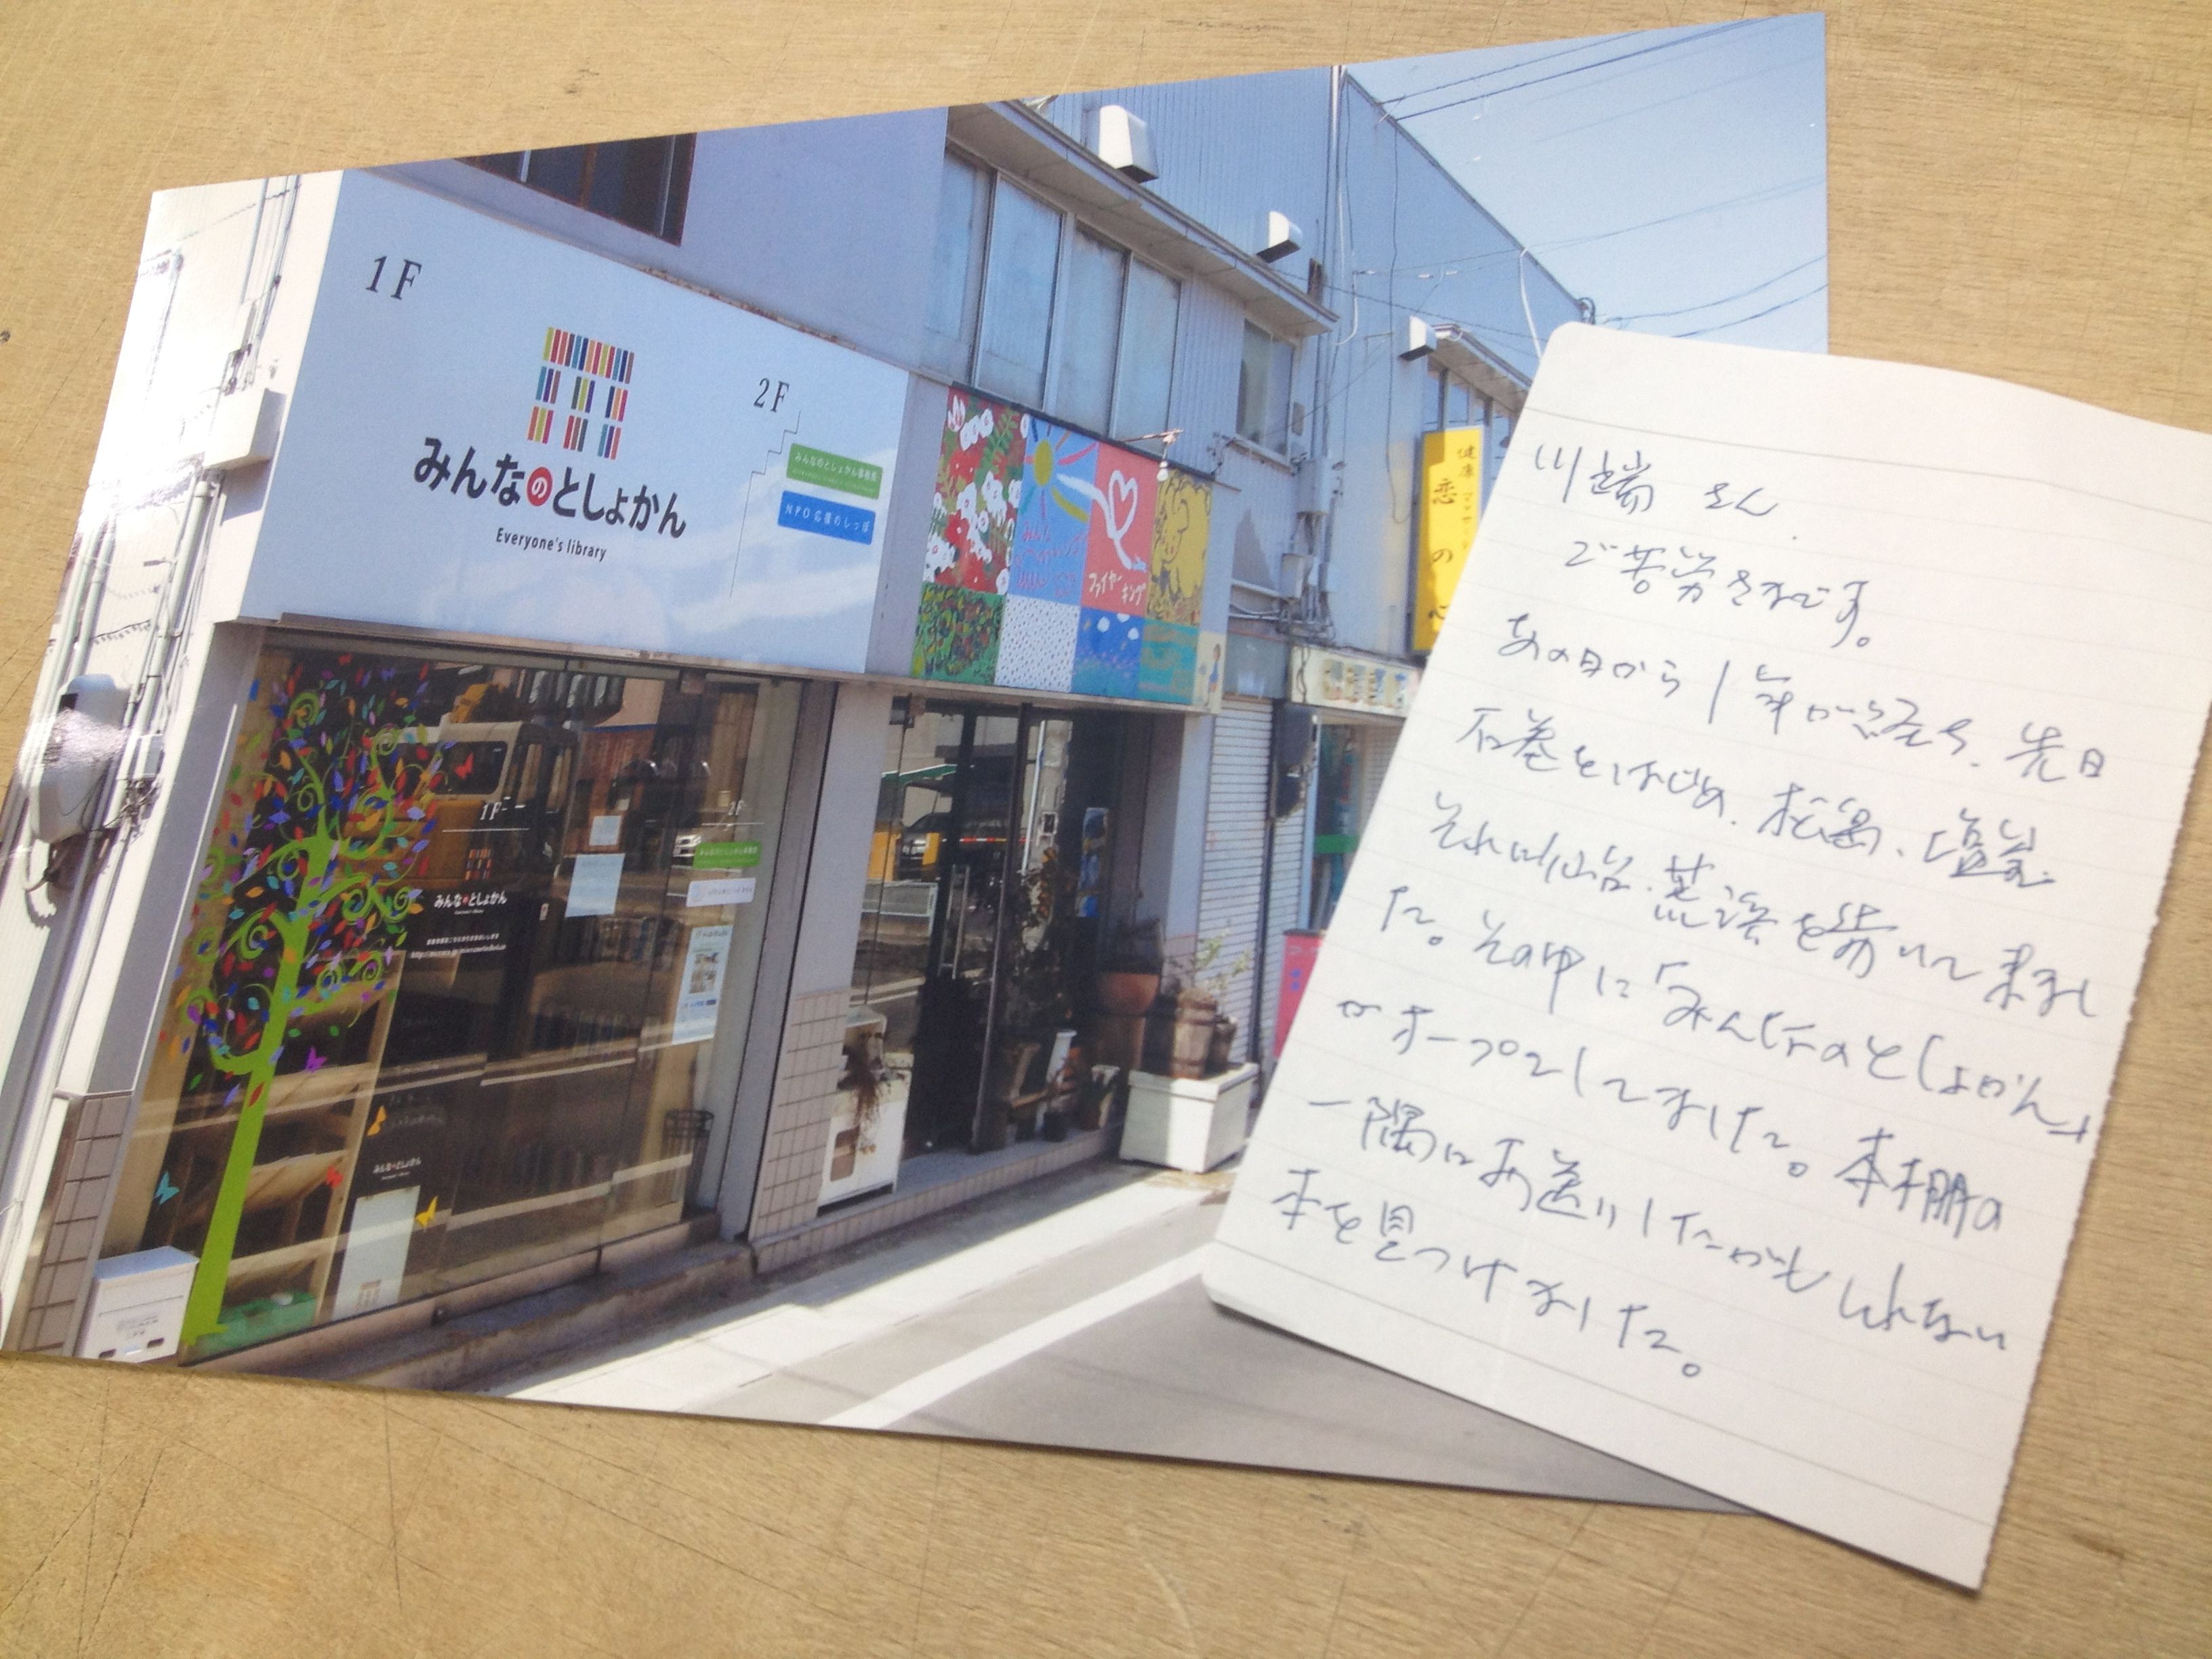 1F
2F
みんなのとしょかん
Everyone's library
みんなのとしょかん事務局
NPO 応援のしっぽ
ファイヤー
キング
健康
恋
の
1F
2F
みんなのとしょかん
みんなのとしょかん
川端 さん
ご苦労さまです。
あの日から1年が経ち、先日
石巻をはじめ、松島、塩釜
それに仙台、荒浜を歩いて来まし
た。その中に「みんなのとしょかん」
がオープンしてました。本棚の
一隅にお送りしたかもしれない
本を見つけました。